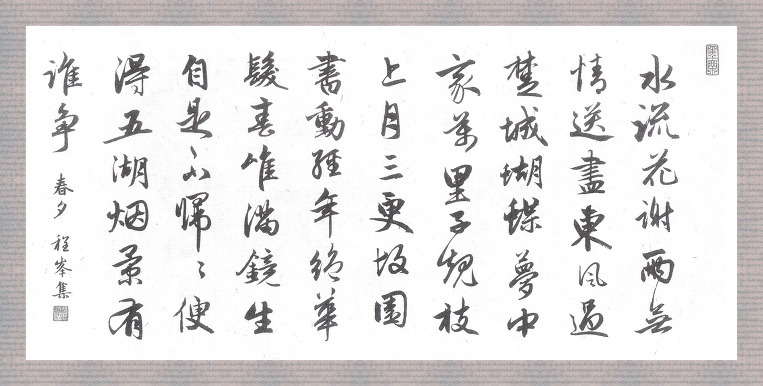 水流花謝兩無
情送盡東風過
楚城蝴蝶夢中
家萬里子規枝
上月三更故園
書動經年絕華
髮春唯滿鏡生
自是不歸〻便
得五湖烟景有
誰爭
春夕 程峯集